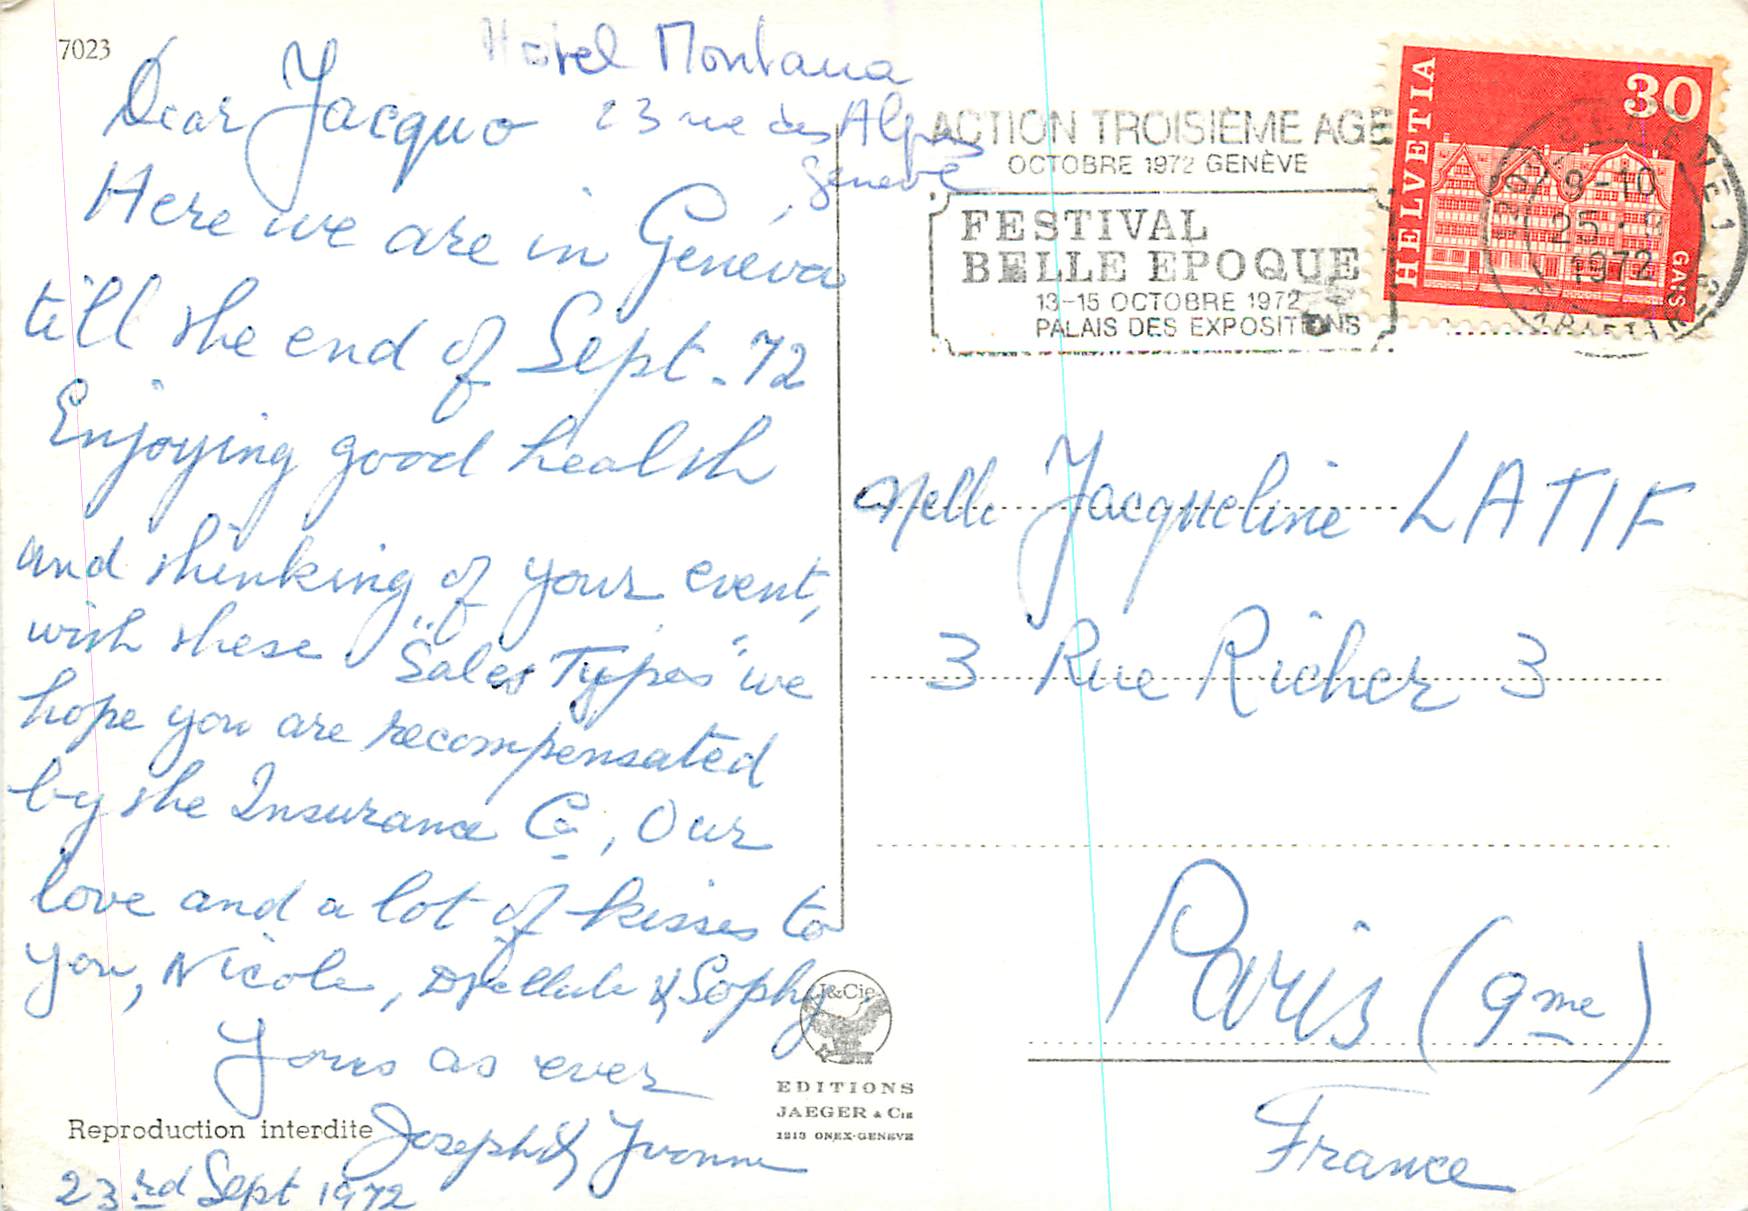 7023
Hotel Montana
23 rue des Alpes
Genève
Dear Jacquo
Here we are in Geneva
till the end of Sept. 72
Enjoying good health
and thinking of your event,
with these "Sales Types" we
hope you are recompensated
by the Insurance Co, Our
love and a lot of kisses to
you, Nicole, & Sophy
Yours as ever
Joseph & Yvonne
23rd Sept 1972
Reproduction interdite
J&Cie
EDITIONS
JAEGER & Cie
1213 ONEX-GENEVE
ACTION TROISIÈME AGE
OCTOBRE 1972 GENÈVE
FESTIVAL
BELLE EPOQUE
13-15 OCTOBRE 1972
PALAIS DES EXPOSITIONS
HELVETIA
30
GAIS
9-10
1972
Melle Jacqueline LATIF
3 Rue Richer 3
Paris (9me)
France